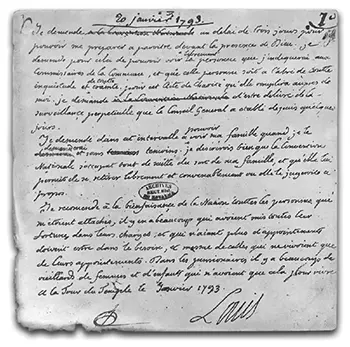 20 janvier 1793.
Je demande un délai de trois jours pour
pouvoir me préparer a paroitre devant la presence de Dieu. je
librement
demande pour cela de pouvoir voir la personne que j'indiquerai aux
Commissaires de la Commune, et que cette personne soit a l'abri de toute
inquietude et crainte, pour cet acte de charité qu'elle remplira aupres de
moi. je demande d'etre delivré de la
surveillance perpetuelle que le Conseil General a etablie depuis quelques
jours.
Je demande dans cet intervalle a pouvoir voir ma famille quand je le
demanderai et sans temoins. je desirerois bien que la Convention
Nationale s'occupat tout de suite du sort de ma famille, et qu'elle lui
permit de se retirer librement et convenablement ou elle le jugeroit a
propos.
ARCHIVES
Je recommende à la bienfaisance de la Nation toutes les personnes qui
m'etoient attachées, il y en a beaucoup qui avoient mis toutes leur
fortune dans leurs charges, et qui n'aiant plus d'appointements
doivent etre dans le besoin, et mesme de celles qui ne vivoient que
de leurs appointements. Dans les pensionnaires il y a beaucoup de
vieillards de femmes et d'enfants qui n'avoient que cela pour vivre.
a la Tour du Temple le Janvier 1793.
Louis